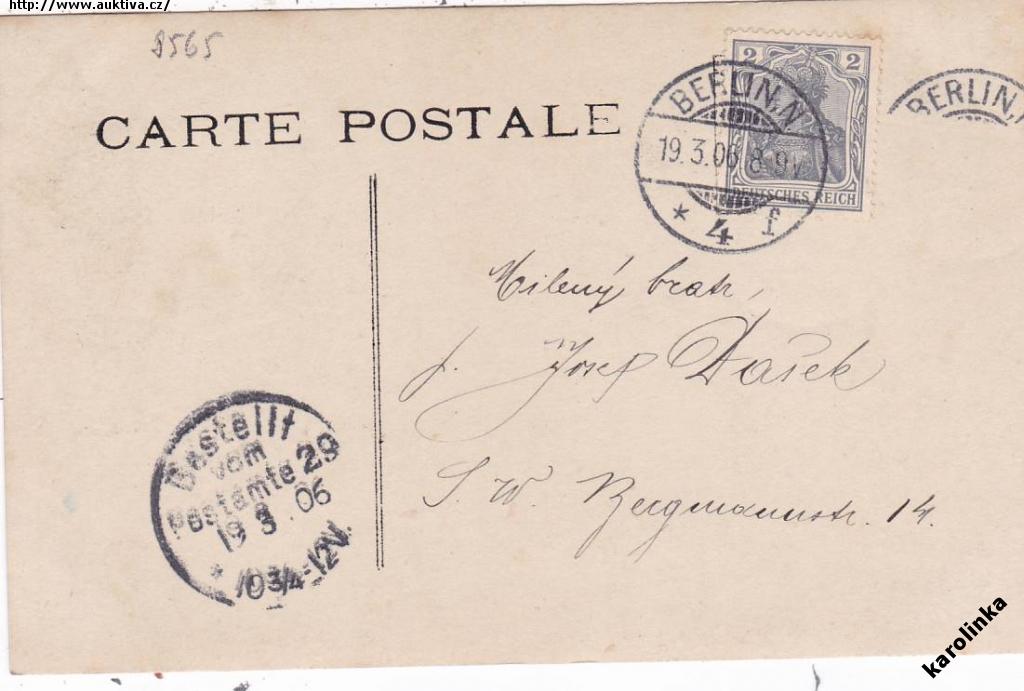 http://www.auktiva.cz/
8565
CARTE POSTALE
2 2
DEUTSCHES REICH
BERLIN, N
19.3.06 8-9V
* 4 f
BERLIN,
Milený bratr,
p. Josef Dašek
S. W. Bergmannstr. 14.
Bestellt
vom
Postamte 29
19 3. 06
* 10 3/4-12V.
karolinka